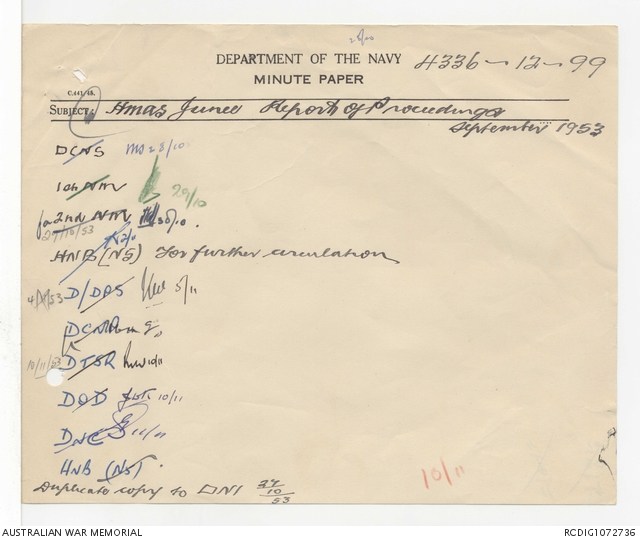 28/10
DEPARTMENT OF THE NAVY 4336-12-99
MINUTE PAPER
C.441/48.
SUBJECT: HMAS Junee Report of Proceedings
September 1953
DCNS 28/10
1st NM 29/10
for 2nd NM 30/10.
27/10/53
HNB (NS) for further circulation
4 53 D/DPS 5/11
10/11/53 DTSR 10/11
DOD 10/11
DNC 11/11
HNB (NS).
Duplicate copy to DNI 27/10/53
10/11
AUSTRALIAN WAR MEMORIAL RCDIG1072736